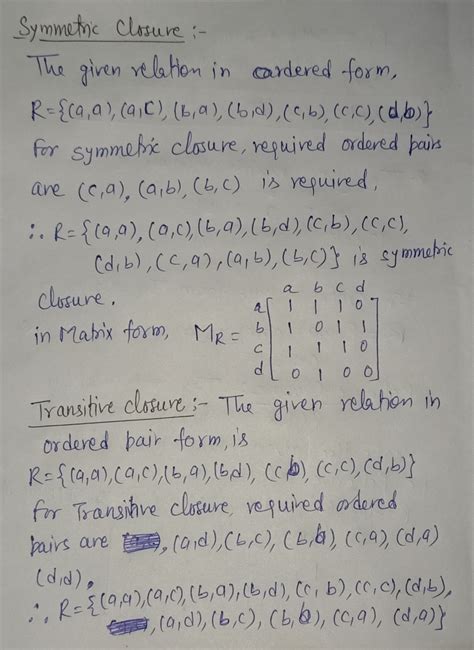 Symmetric Closure :-
The given relation in ordered form,
R={(a,a), (a,c), (b,a), (b,d), (c,b), (c,c), (d,b)}
for symmetric closure, required ordered pairs
are (c,a), (a,b), (b,c) is required,
∴ R={(a,a), (a,c), (b,a), (b,d), (c,b), (c,c),
(d,b), (c,a), (a,b), (b,c)} is symmetric
closure.
a b c d
in Matrix form, MR =
a 1 1 1 0
b 1 0 1 1
c 1 1 1 0
d 0 1 0 0
Transitive closure :- The given relation in
ordered pair form, is
R={(a,a), (a,c), (b,a), (b,d), (c,b), (c,c), (d,b)}
for Transitive closure, required ordered
pairs are , (a,d), (b,c), (b,b), (c,a), (d,a)
(d,d),
∴ R={(a,a), (a,c), (b,a), (b,d), (c,b), (c,c), (d,b),
, (a,d), (b,c), (b,b), (c,a), (d,a)}